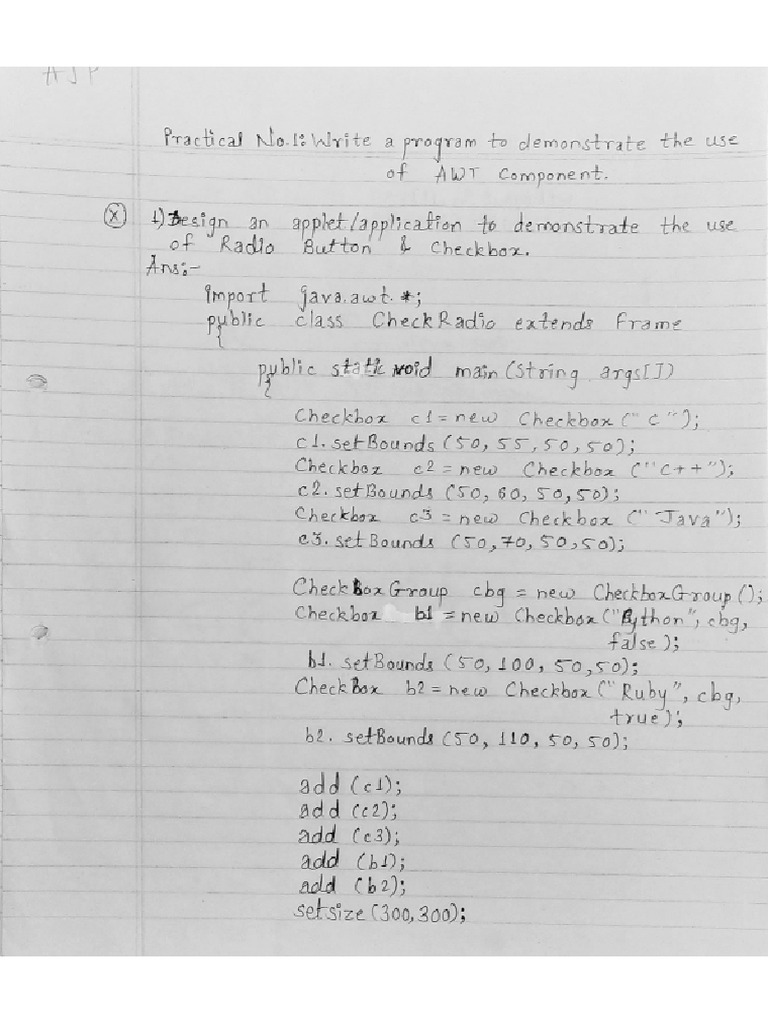 AJP
Practical No.1: Write a program to demonstrate the use
of AWT Component.
(X) 1) Design an applet/application to demonstrate the use
of Radio Button & Checkbox.
Ans:-
import java.awt.*;
public class CheckRadio extends Frame
{
public static void main (String args[])
{
Checkbox c1 = new Checkbox ("C");
c1.setBounds (50, 55, 50, 50);
Checkbox c2 = new Checkbox ("C++");
c2.setBounds (50, 60, 50, 50);
Checkbox c3 = new Checkbox ("Java");
c3.setBounds (50, 70, 50, 50);
CheckBoxGroup cbg = new CheckboxGroup ();
Checkbox b1 = new Checkbox ("Python", cbg,
false);
b1.setBounds (50, 100, 50, 50);
CheckBox b2 = new Checkbox ("Ruby", cbg,
true);
b2.setBounds (50, 110, 50, 50);
add (c1);
add (c2);
add (c3);
add (b1);
add (b2);
setsize (300, 300);